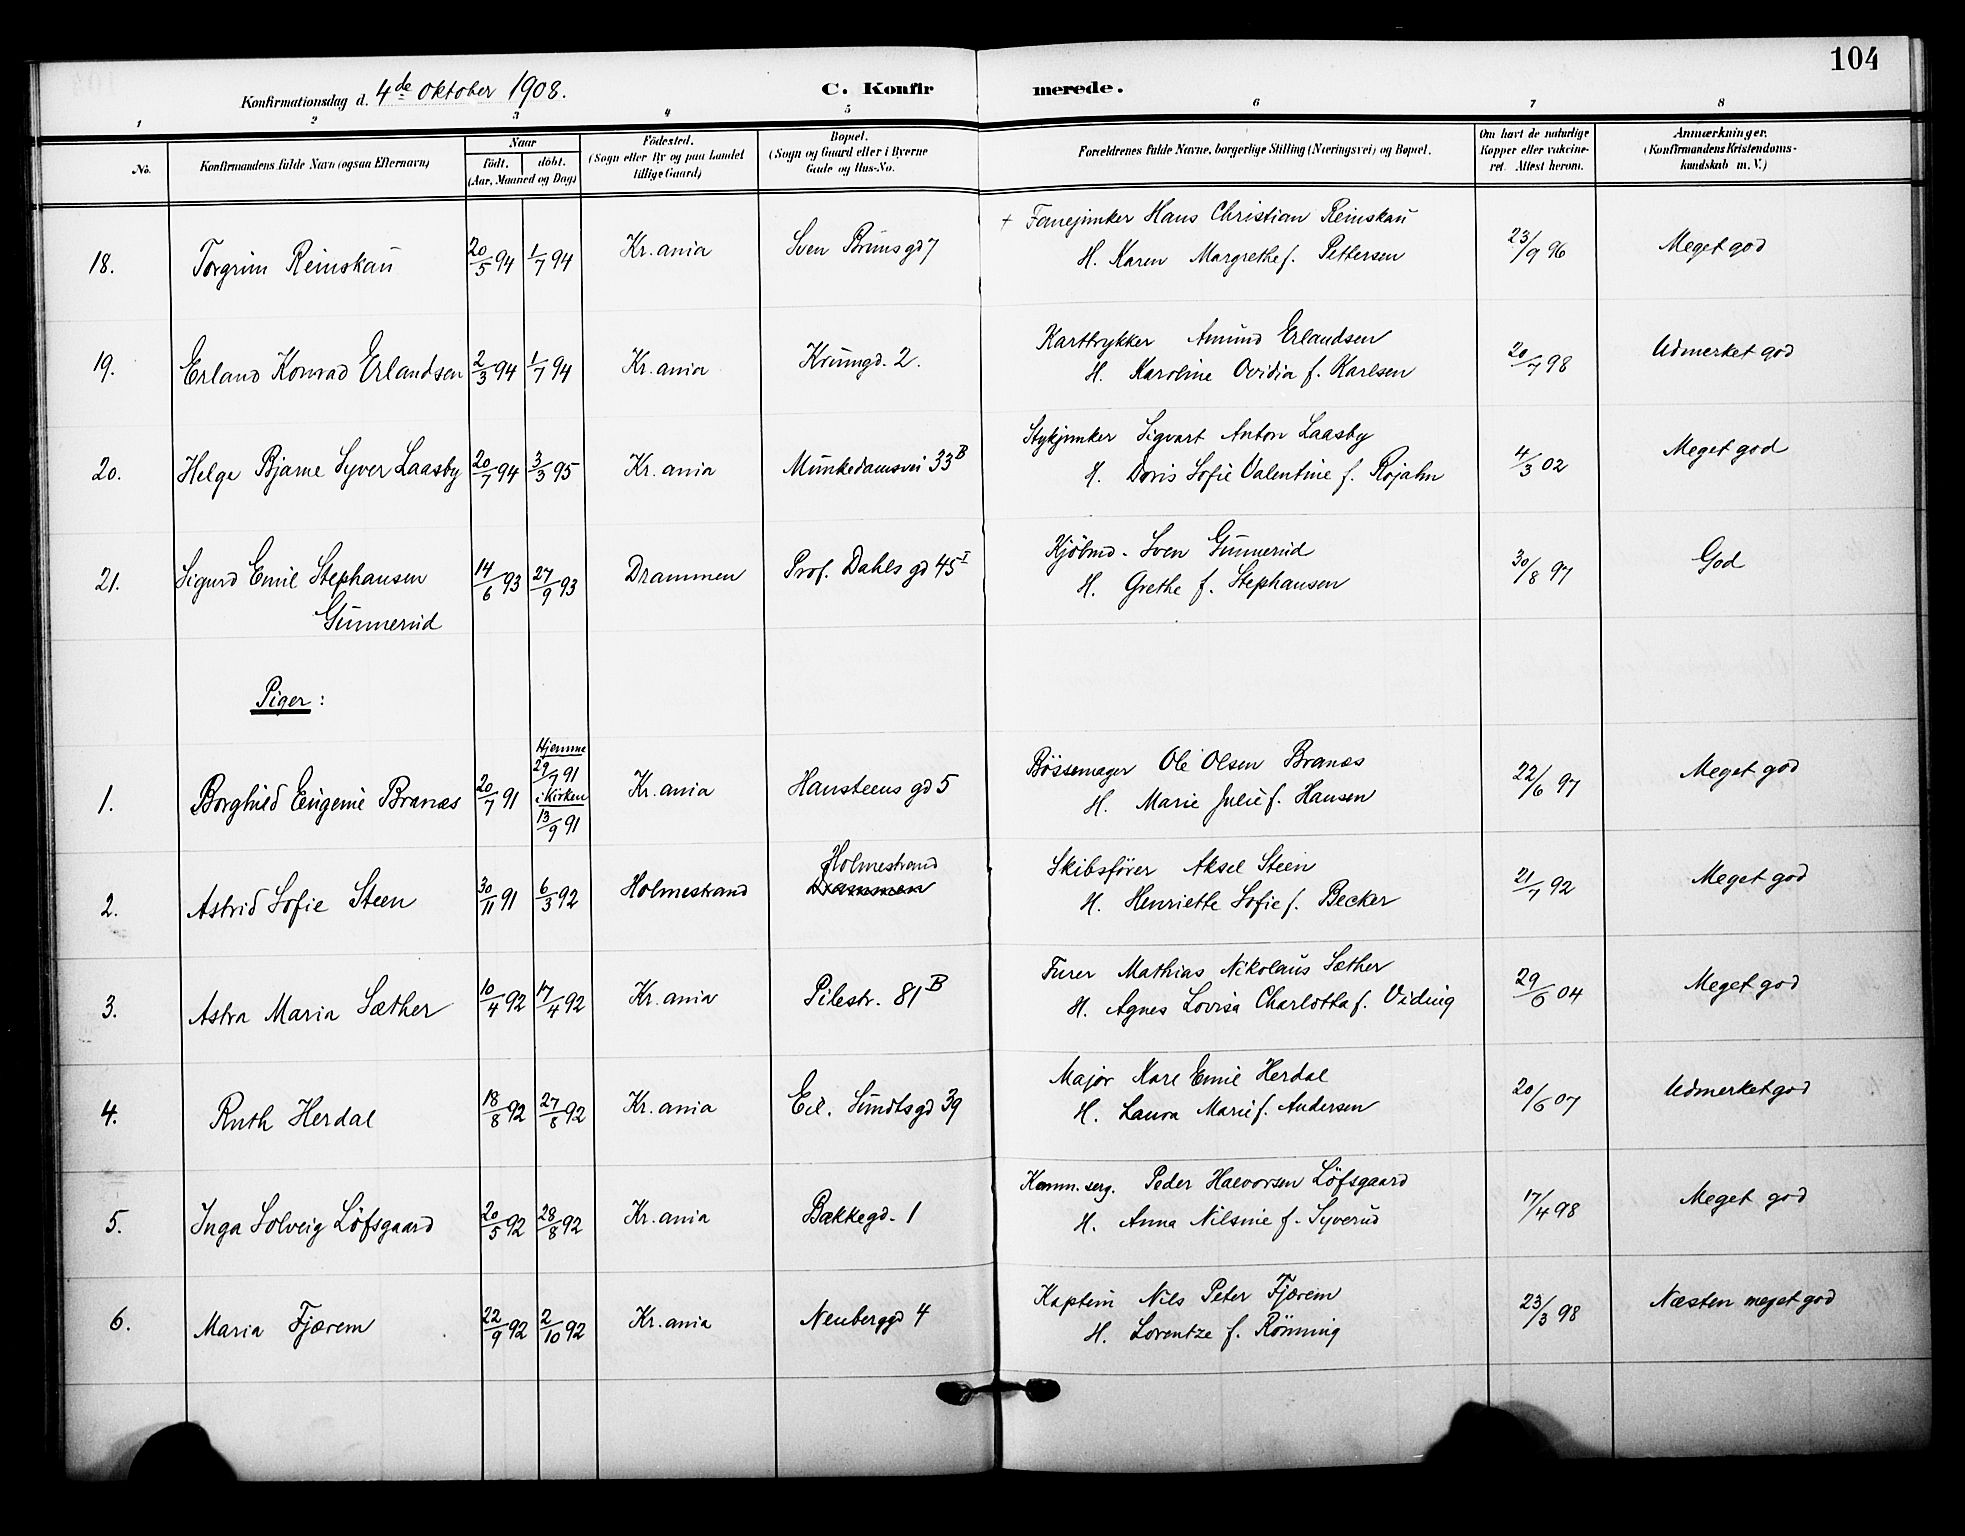 104
Konfirmationsdag d. 4de oktober 1908. C. Konfirmerede.
1 2 3 4 5 6 7 8
No. Konfirmandens fulde Navn (ogsaa Efternavn) Naar født. døbt. (Aar, Maaned og Dag) Fødested. (Sogn eller By og paa Landet tillige Gaard) Bopæl. (Sogn og Gaard eller i Byerne Gade og Hus-No. Forældrenes fulde Navne, borgerlige Stilling (Næringsvei) og Bopæl. Om havt de naturlige Kopper eller vakcineret. Attest herom. Anmærkninger. (Konfirmandens Kristendomskundskab m. V.)
18. Torgrim Reinskau 20/5 94 1/7 94 Kr.ania Sven Brunsgd 7 + Fanejunker Hans Christian Reinskau
H. Karen Margrethe f. Pettersen 23/9 96 Meget god
19. Erland Konrad Erlandsen 2/3 94 1/7 94 Kr.ania Krumgd. 2. Karttrykker Amund Erlandsen
H. Karoline Ovidia f. Karlsen 20/7 98 Udmerket god
20. Helge Bjarne Syver Laasby 20/7 94 3/3 95 Kr.ania Munkedamsvei 33B Stykjunker Sigvart Anton Laasby
H. Doris Sofie Valentine f. Rojahn 4/3 02 Meget god
21. Sigurd Emil Stephansen 14/6 93 27/9 93 Drammen Prof. Dahls gd 45I Kjöbmd. Sven Gunnerud
Gunnerud H. Grethe f. Stephansen 30/8 97 God
Piger:
1. Borghild Eugenie Branæs 20/7 91 Hjemme 29/7 91 i Kirken 13/9 91 Kr.ania Hansteens gd 5 Bössemager Ole Olsen Branæs
H. Marie Julie f. Hansen 22/6 97 Meget god
2. Astrid Sofie Steen 30/11 91 6/3 92 Holmestrand Holmestrand Drammen Skibsförer Aksel Steen
H. Henriette Sofie f. Becker 21/7 92 Meget god
3. Astra Maria Sæther 10/4 92 17/4 92 Kr.ania Pilestr. 81B Furer Mathias Nikolaus Sæther
H. Agnes Lovisa Charlotta f. Viding 29/6 04 Meget god
4. Ruth Herdal 18/8 92 27/8 92 Kr.ania Eil. Sundtsgd 39 Major Karl Emil Herdal
H. Laura Marie f. Andersen 20/6 07 Udmerket god
5. Inga Solveig Löfsgaard 20/5 92 28/8 92 Kr.ania Bakkegd. 1 Komm.serg. Peder Halvorsen Löfsgaard
H. Anna Nilsine f. Syverud 17/4 98 Meget god
6. Maria Fjærem 22/9 92 2/10 92 Kr.ania Neuberggd 4 Kaptein Nils Peter Fjærem
H. Lorentze f. Rönning 23/3 98 Næsten meget god